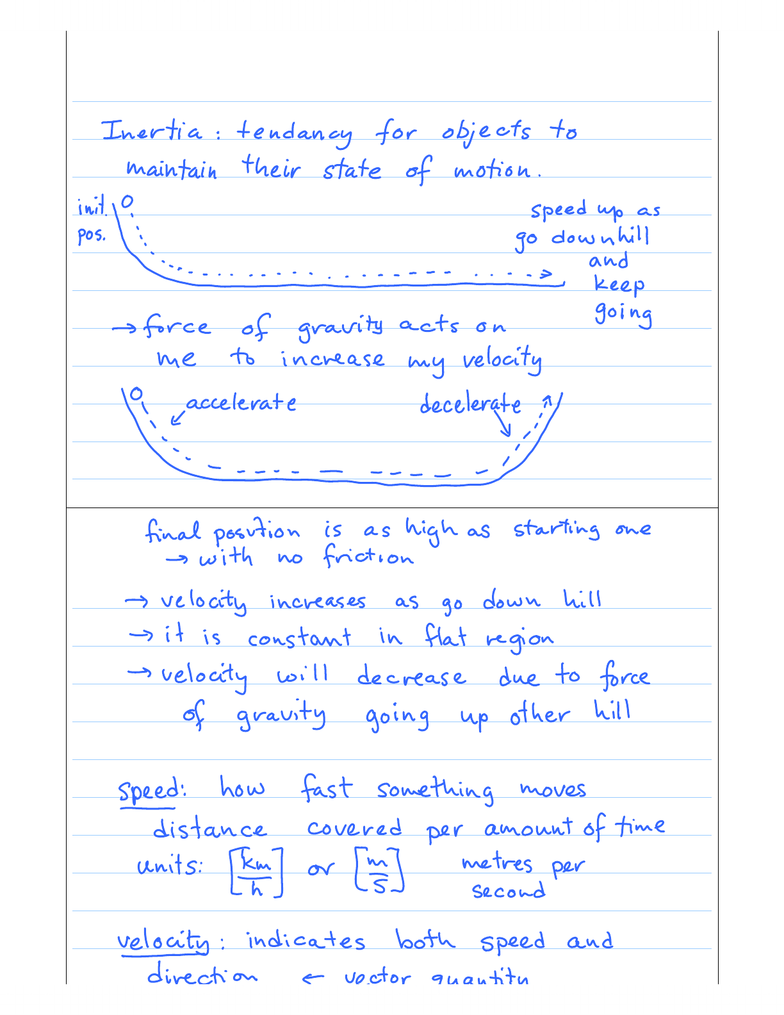 Inertia: tendancy for objects to
maintain their state of motion.
init.
pos.
speed up as
go downhill
and
keep
going
→ force of gravity acts on
me to increase my velocity
accelerate
decelerate
final position is as high as starting one
→ with no friction
→ velocity increases as go down hill
→ it is constant in flat region
→ velocity will decrease due to force
of gravity going up other hill
speed: how fast something moves
distance covered per amount of time
units: [km/h] or [m/s] metres per
second
velocity: indicates both speed and
direction ← vector quantity